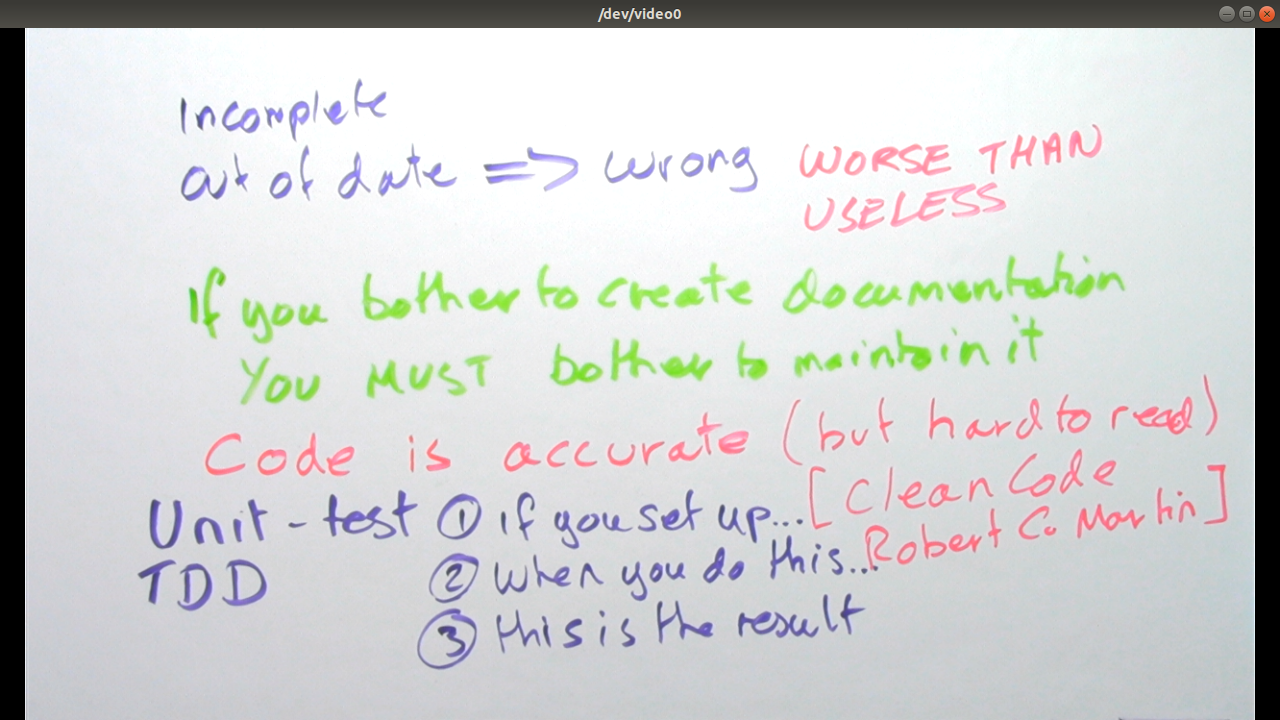 /dev/video0
Incomplete
out of date => wrong WORSE THAN
USELESS
If you bother to create documentation
YOU MUST bother to maintain it
Code is accurate (but hard to read)
[Clean Code
Robert C. Martin]
Unit-test ① if you set up...
TDD ② When you do this...
③ this is the result